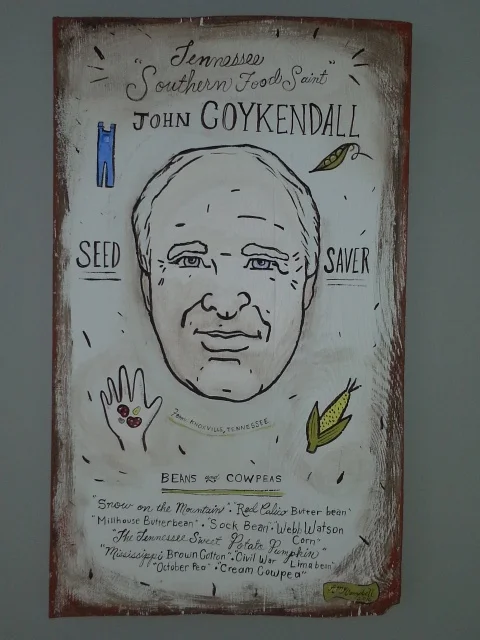 Tennessee
"Southern Food Saint"
JOHN COYKENDALL
SEED
SAVER
From KNOXVILLE, TENNESSEE
BEANS and COWPEAS
"Snow on the Mountain" • "Red Calico Butter bean"
"Millhouse Butterbean" • "Sock Bean" • "Webb Watson Corn"
"The Tennessee Sweet Potato Pumpkin"
"Mississippi Brown Cotton" • "Civil War Limabean"
"October Pea" • "Cream Cowpea"